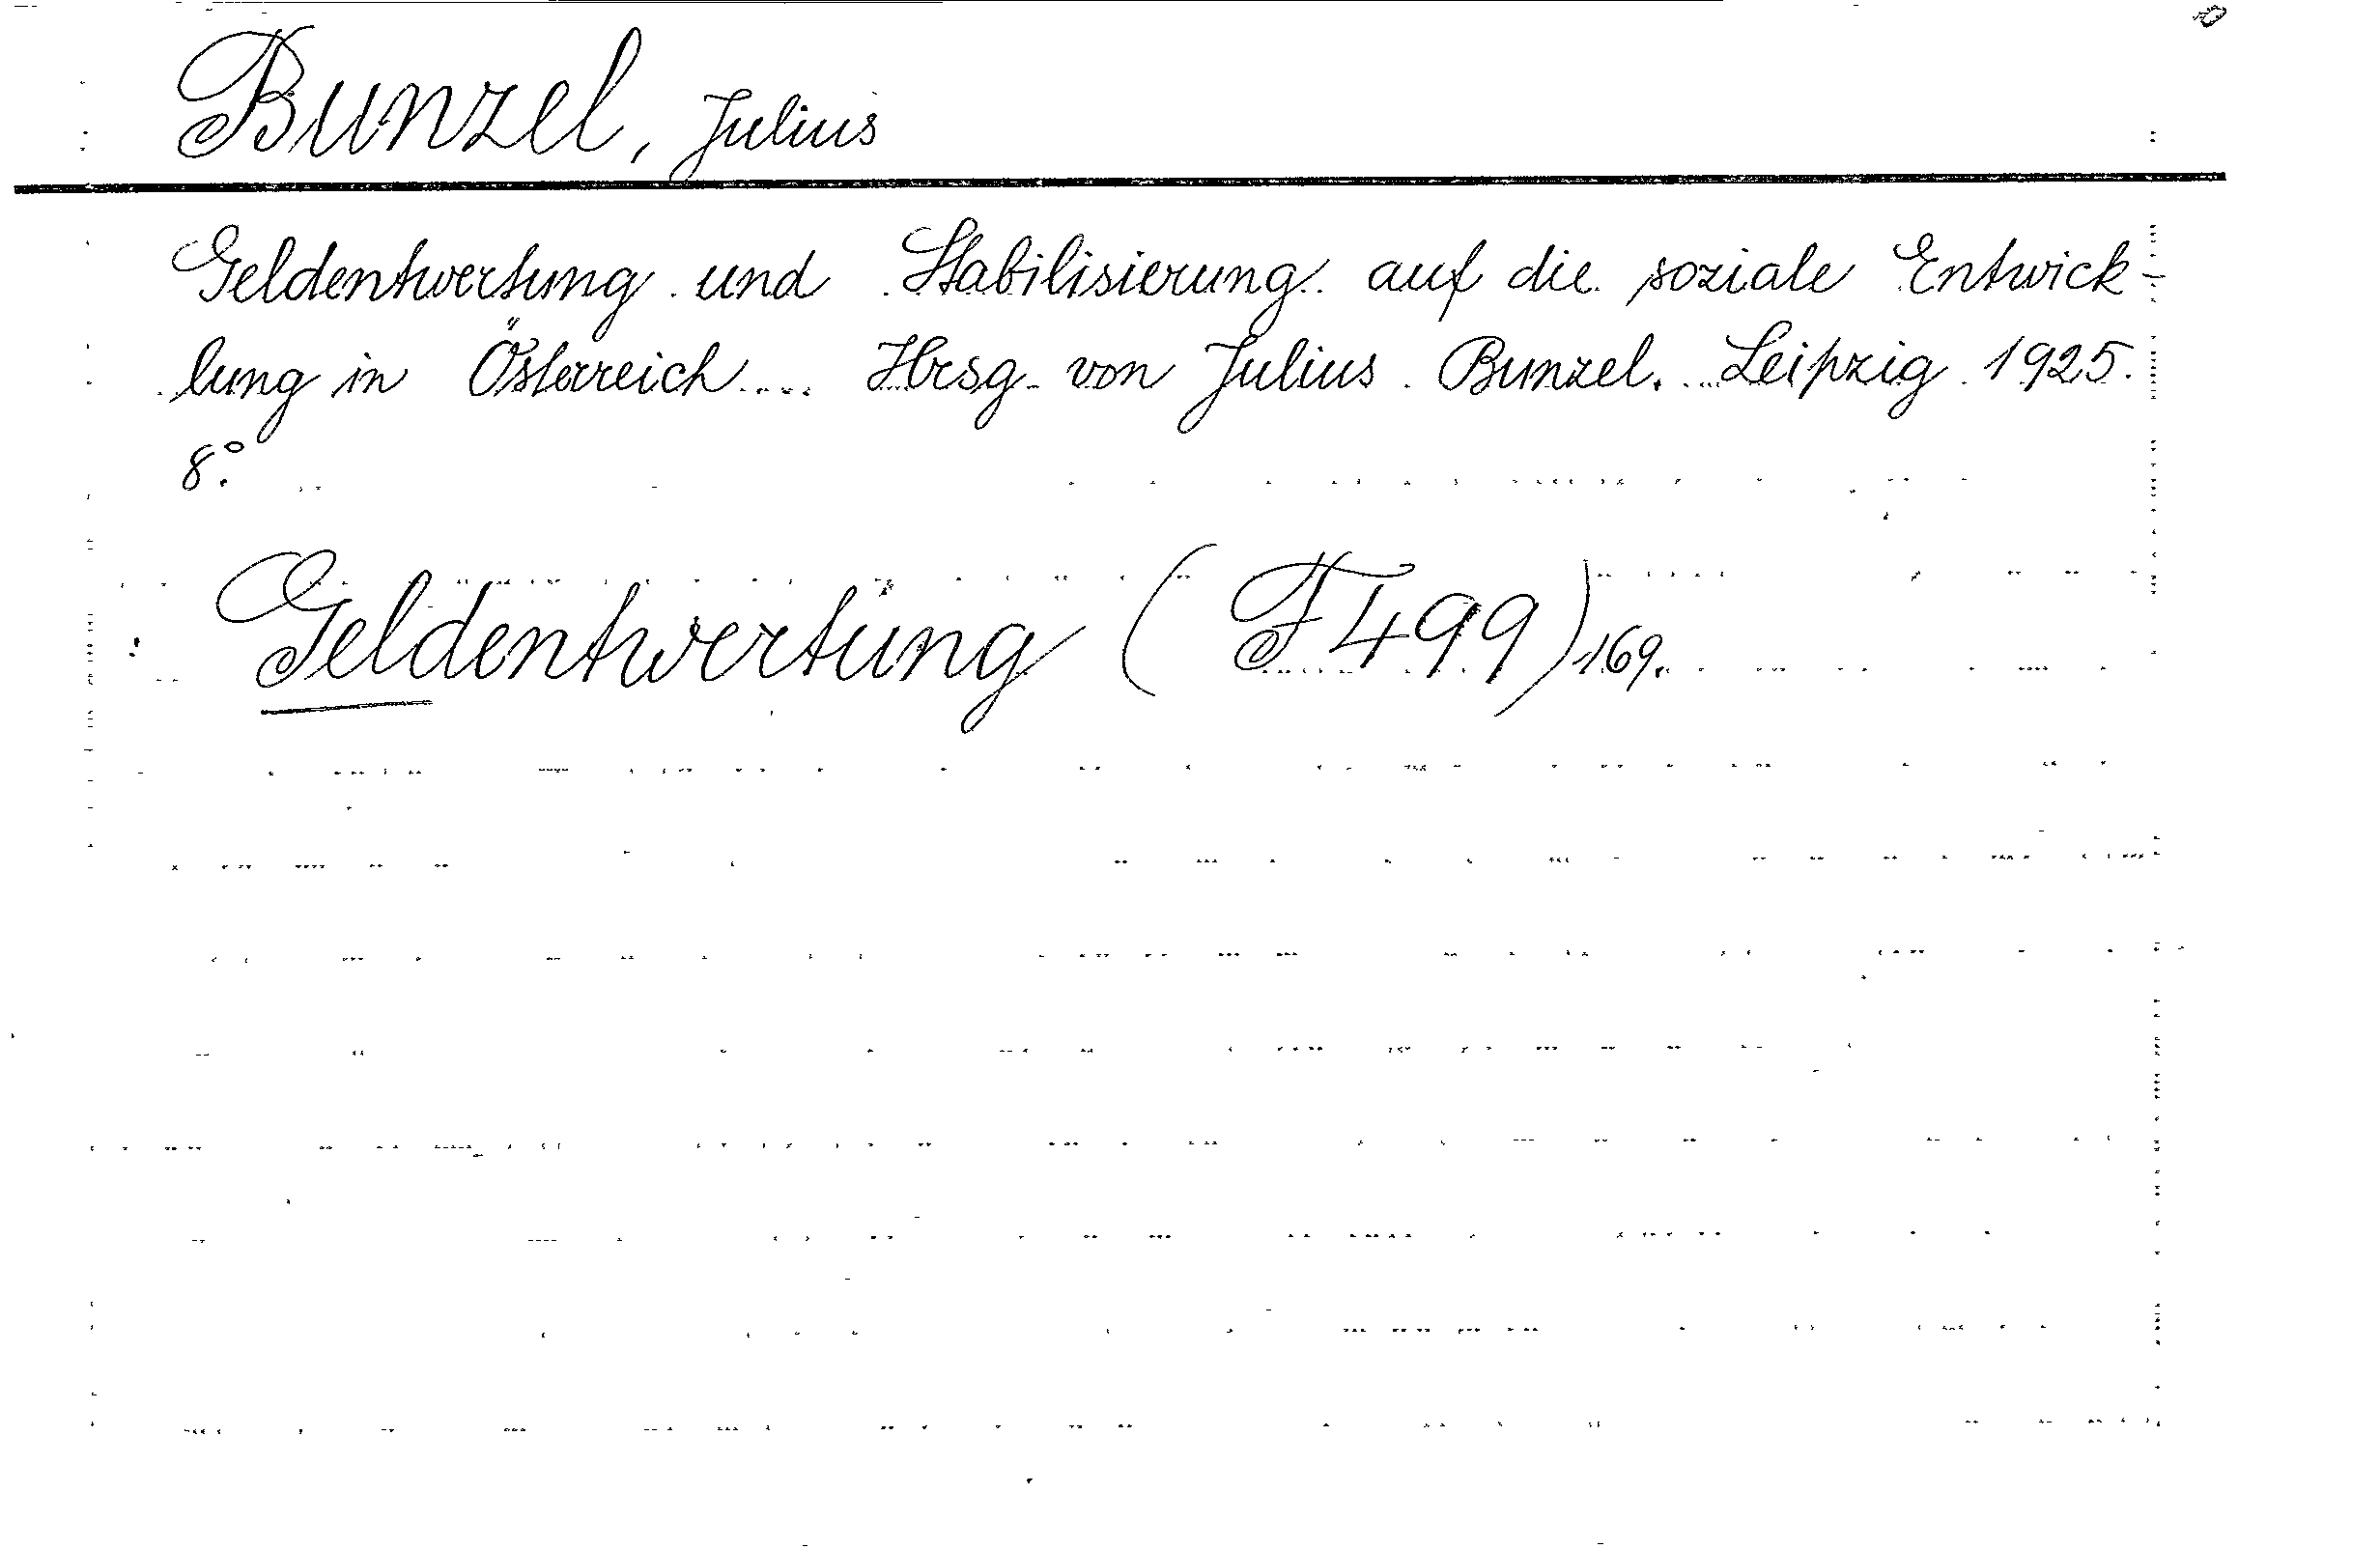 Bunzel, Julius
Geldentwertung und Stabilisierung auf die soziale Entwick-
lung in Österreich.... Hrsg. von Julius Bunzel. Leipzig 1925.
8°.
Geldentwertung (F 499) 169.